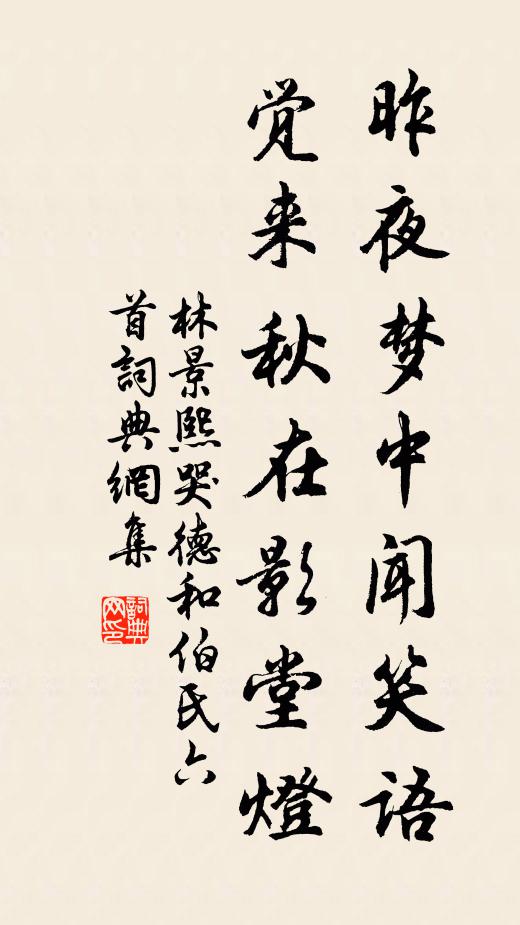 昨夜梦中闻笑语
觉来秋在影堂燈
林景熙哭德和伯氏六
首詞典網集
詞典
网印